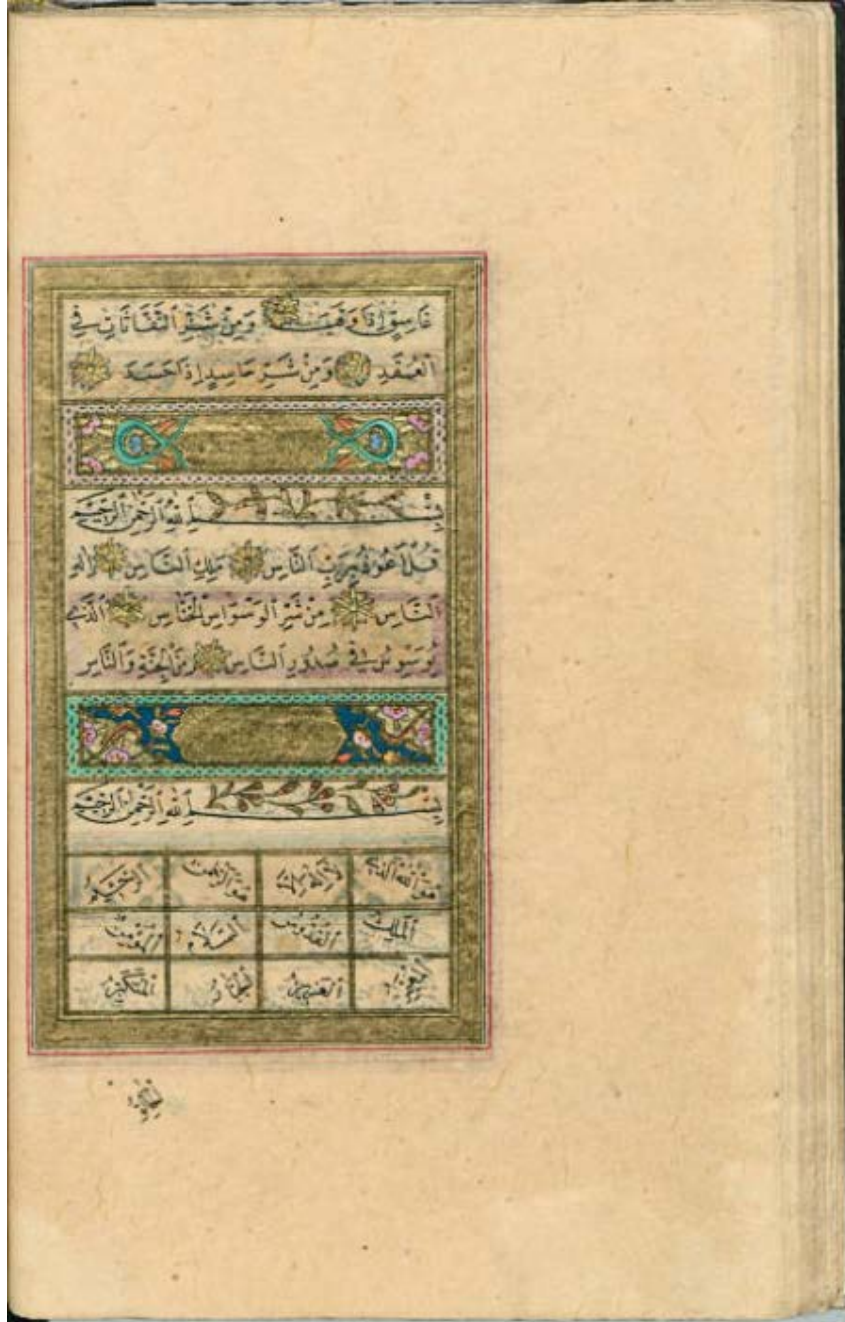 غَاسِقٍ إِذَا وَقَبَ وَمِنْ شَرِّ النَّفَّاثَاتِ فِي
الْعُقَدِ وَمِنْ شَرِّ حَاسِدٍ إِذَا حَسَدَ
بِسْمِ اللهِ الرَّحْمٰنِ الرَّحِيمِ
قُلْ أَعُوذُ بِرَبِّ النَّاسِ مَلِكِ النَّاسِ إِلٰهِ
النَّاسِ مِنْ شَرِّ الْوَسْوَاسِ الْخَنَّاسِ الَّذِي
يُوَسْوِسُ فِي صُدُورِ النَّاسِ مِنَ الْجِنَّةِ وَالنَّاسِ
بِسْمِ اللهِ الرَّحْمٰنِ الرَّحِيمِ
هُوَ اللهُ الَّذِي لا اله الا هُوَ الرَّحْمٰن الرَّحِيم
الْمَلِك الْقُدُّوس السَّلَام الْمُؤْمِن
الْعَزِيز الْجَبَّار الْمُتَكَبِّر